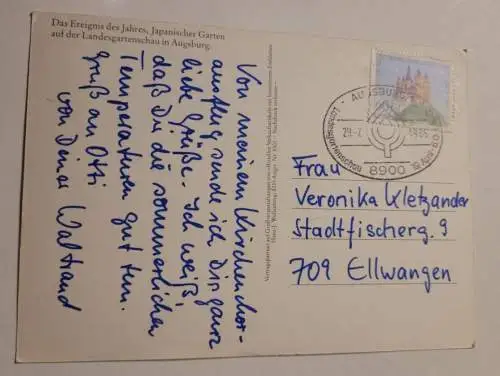 Das Ereignis des Jahres, Japanischer Garten
auf der Landesgartenschau in Augsburg.
Von meinem Kirchenchor-
ausflug sende ich Dir ganz
liebe Grüße. Ich weiß,
daß Du die sommerlichen
Temperaturen gut tun.
Gruß an Otti
von Deiner Waltraud
AUGSBURG
Landesgartenschau
8900
Frau
Veronika Kletzander
Stadtfischerg. 9
709 Ellwangen